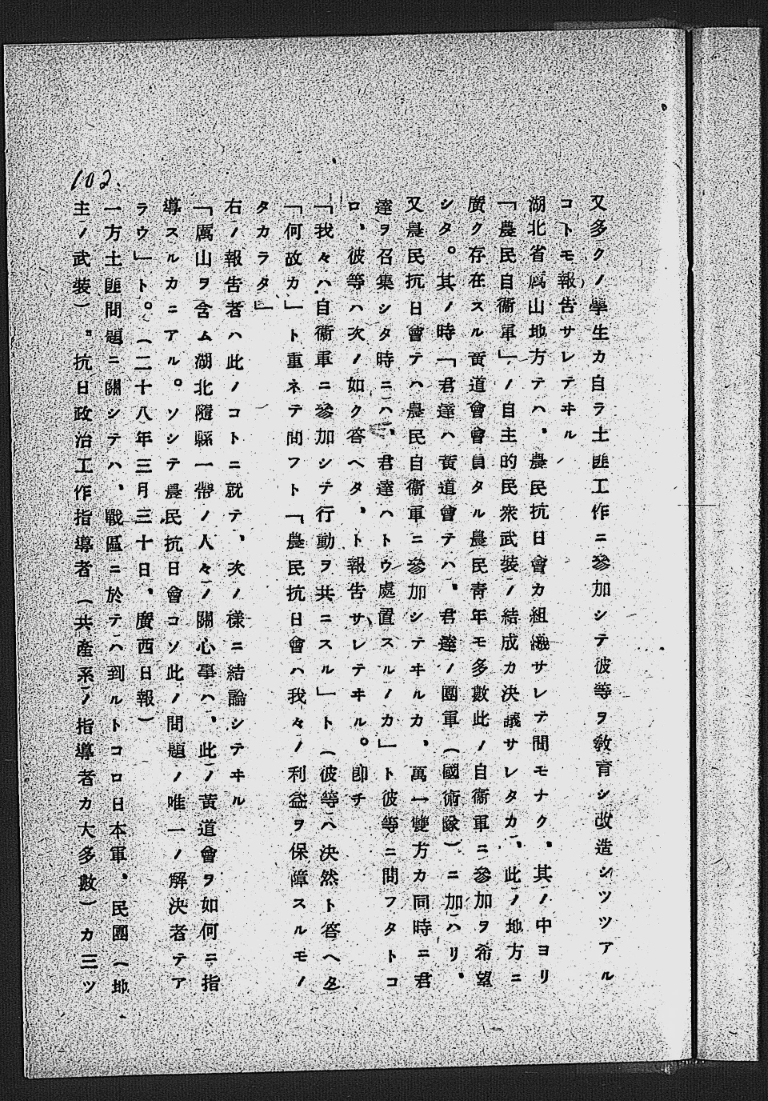 又多クノ學生カ自ラ土匪工作ニ參加シテ彼等ヲ敎育シ改造シツツアル
コトモ報告サレテヰル
湖北省厲山地方テハ、農民抗日會カ組織サレテ間モナク、其ノ中ヨリ
「農民自衞軍」ノ自主的民衆武裝ノ結成カ決議サレタカ、此ノ地方ニ
廣ク存在スル黃道會會員タル農民靑年モ多數此ノ自衞軍ニ參加ヲ希望
シタ。其ノ時「君達ハ黃道會テハ、君達ノ團軍(國術隊)ニ加ハリ、
又農民抗日會テハ農民自衞軍ニ參加シテヰルカ、萬一雙方カ同時ニ君
達ヲ召集シタ時ニハ、君達ハトウ處置スルノカ」ト彼等ニ問フタトコ
ロ、彼等ハ次ノ如ク答ヘタ、ト報告サレテヰル。卽チ
「我々ハ自衞軍ニ參加シテ行動ヲ共ニスル」ト(彼等ハ決然ト答ヘタ
「何故カ」ト重ネテ問フト「農民抗日會ハ我々ノ利益ヲ保障スルモノ
タカラタ」
右ノ報告者ハ此ノコトニ就テ、次ノ樣ニ結論シテヰル
「厲山ヲ含ム湖北隨縣一帶ノ人々ノ關心事ハ、此ノ黃道會ヲ如何ニ指
導スルカニアル。ソシテ農民抗日會コソ此ノ問題ノ唯一ノ解決者テア
ラウ」ト。(二十八年三月三十日、廣西日報)
一方土匪問題ニ關シテハ、戰區ニ於テハ到ルトコロ日本軍、民團(地
主ノ武裝)、抗日政治工作指導者(共產系ノ指導者カ大多數)カ三ツ
102.